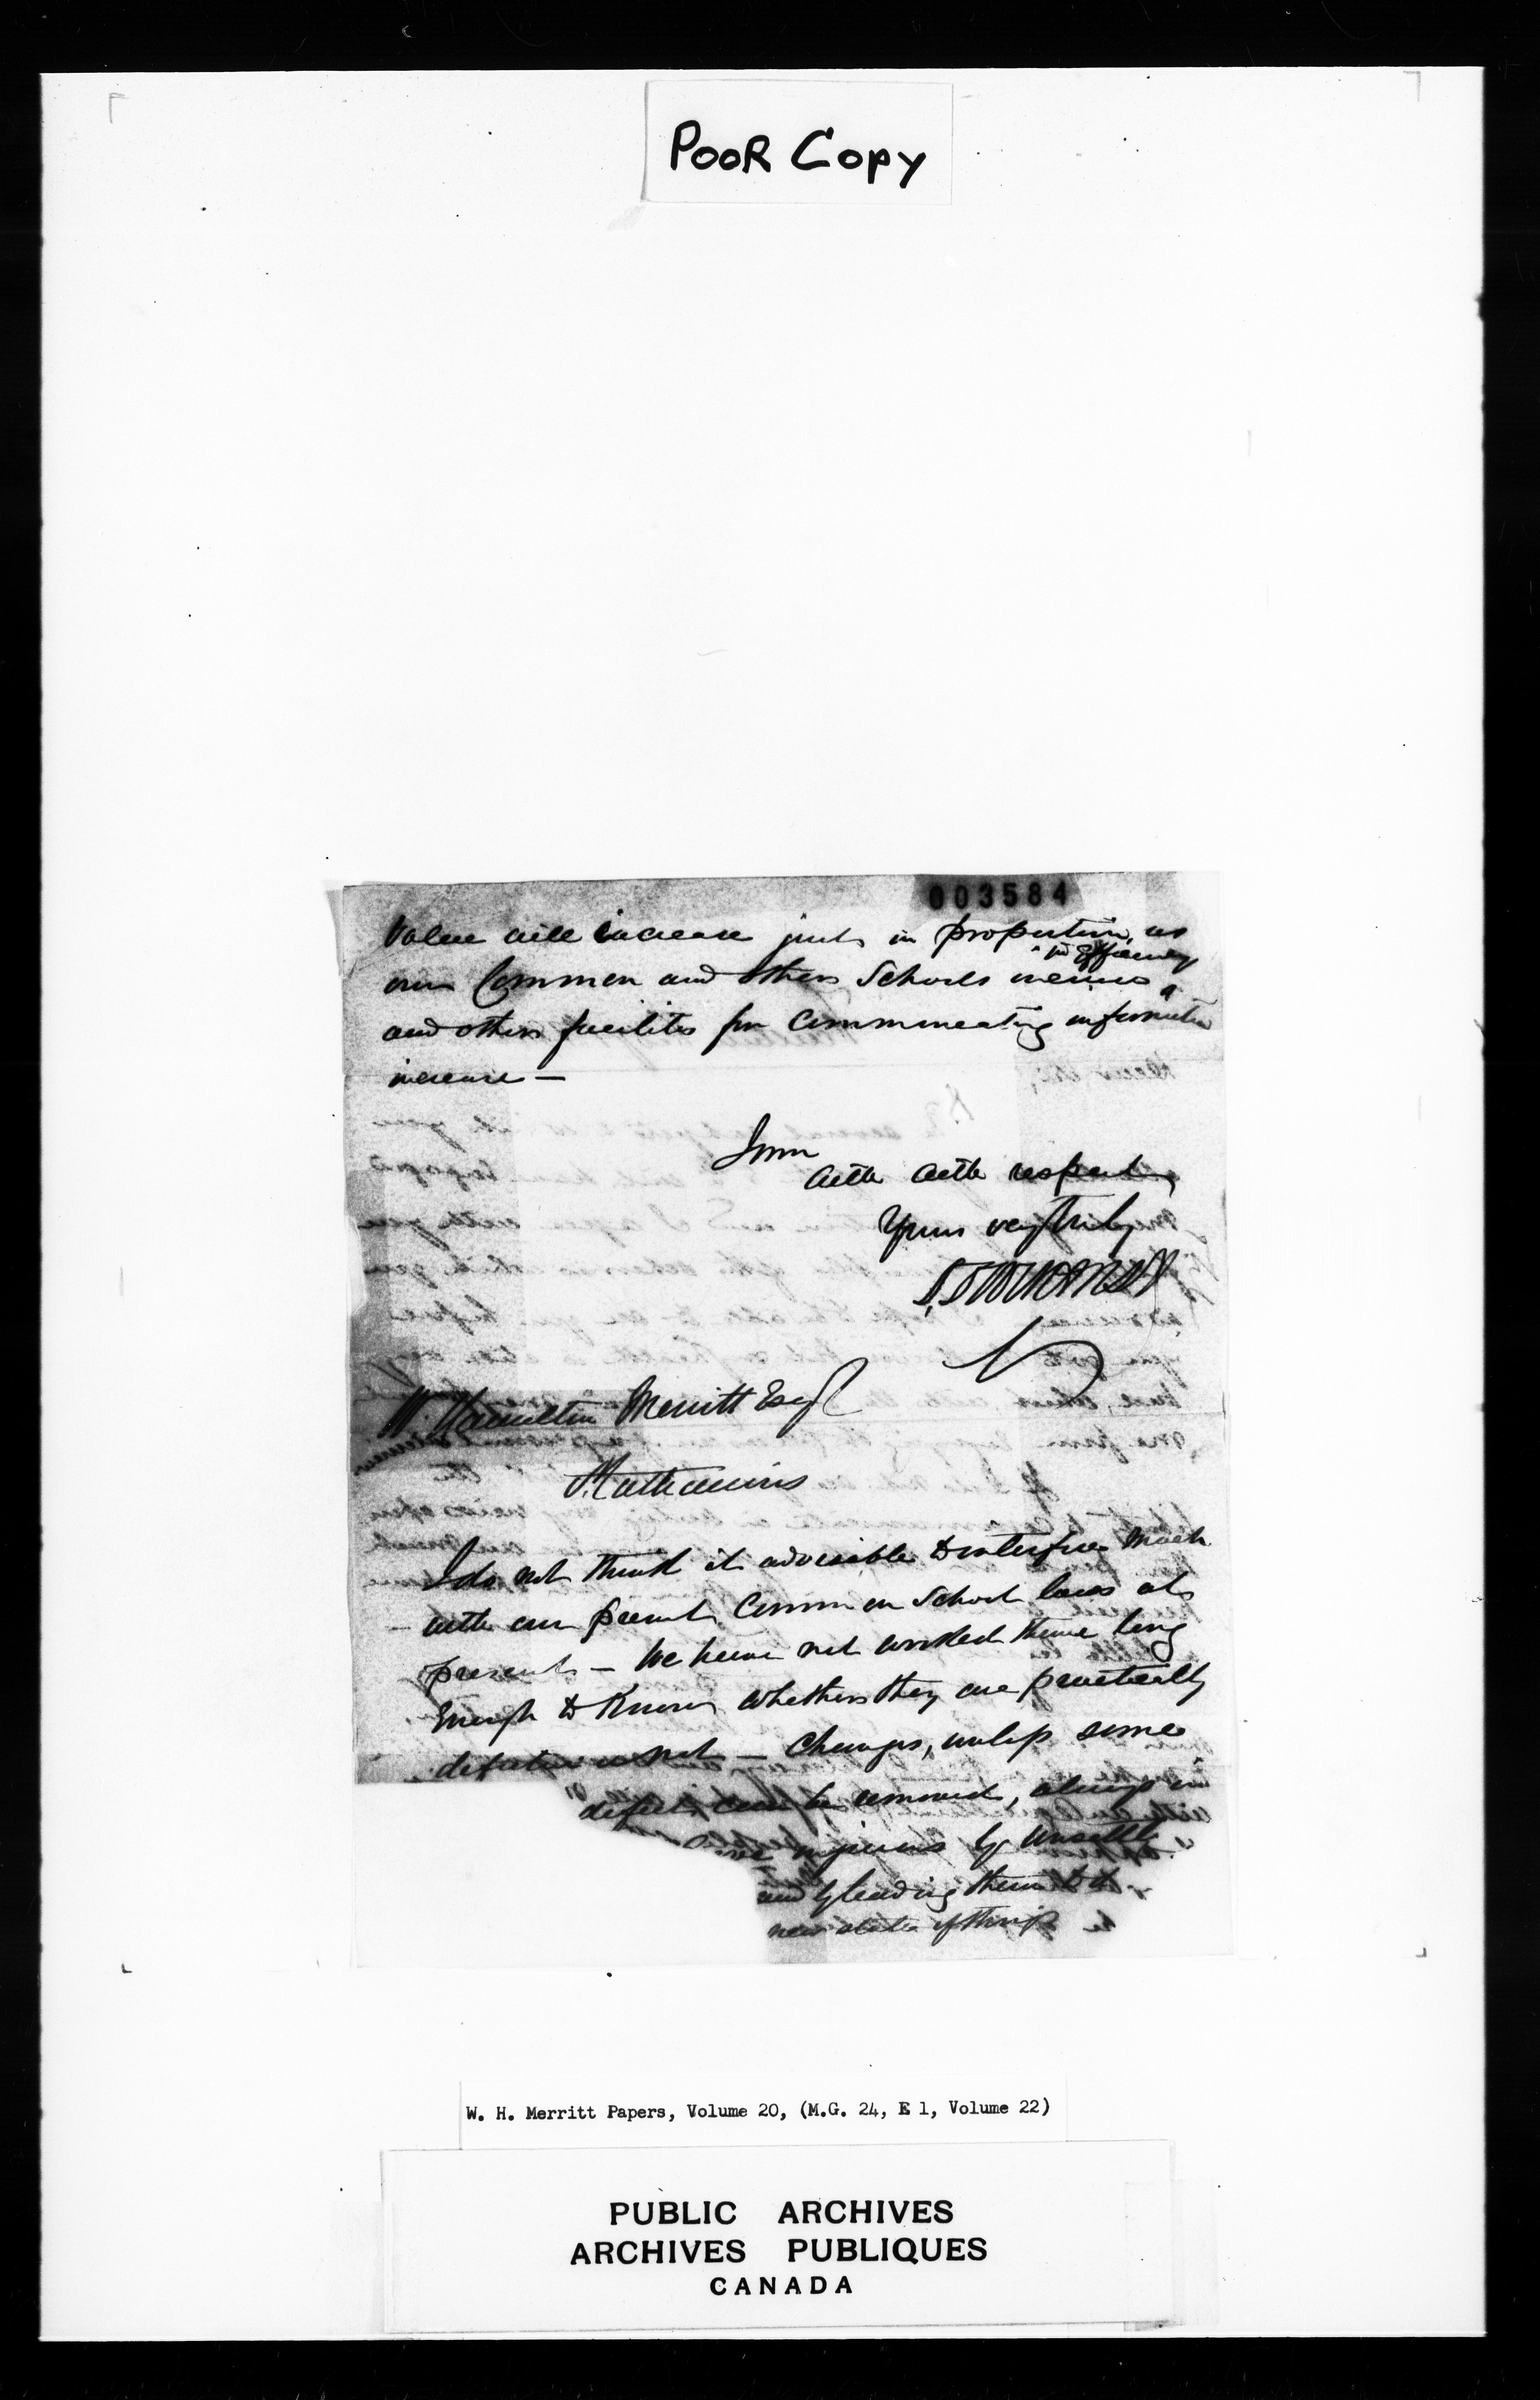 Poor Copy
003584
Value will increase just in proportion as
in Efficiency
our Common and other Schools increase
and other facilities for Communicating information
increase —
I am
with with respect,
Yours very truly
W. Hamilton Merritt Esqr
St. Catharines
I do not think it advisable to interfere much
with our present Common School laws at
present — We have not worked them long
Enough to Know whether they are practically
defective or not — Changes, unless some
defects can be removed, always
injurious by
and by leading them to a
new state of things
W. H. Merritt Papers, Volume 20, (M.G. 24, E 1, Volume 22)
PUBLIC ARCHIVES
ARCHIVES PUBLIQUES
CANADA